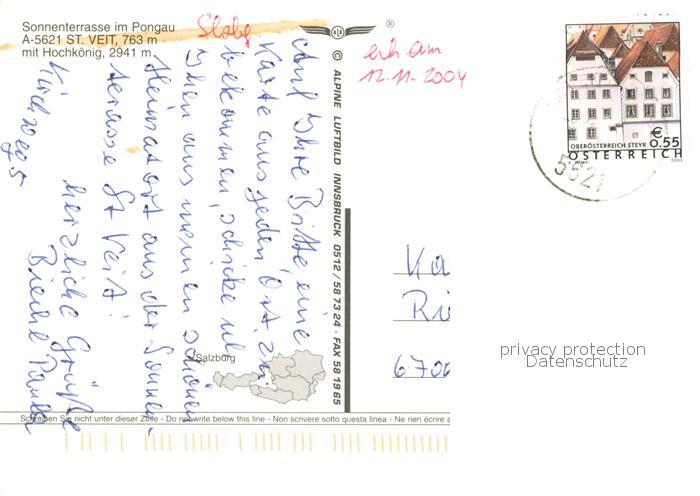 Sonnenterrasse im Pongau
A-5621 ST. VEIT, 763 m
mit Hochkönig, 2941 m
®
© ALPINE LUFTBILD INNSBRUCK 0512/58 73 24 · FAX 58 19 65
erh am
12.11.2004
Auf Ihre Bitte eine
Karte aus jeden Ort zu
bekommen, schicke ich
Ihnen aus meinen schönen
Heimatort aus der Sonnen-
terasse St Veit!
herzliche Grüße
Kirchweg 5
Salzburg
OBERÖSTERREICH STEYR
€ 0.55
ÖSTERREICH
5621
Ka
Ri
6700
privacy protection
Datenschutz
Schreiben Sie nicht unter dieser Zeile - Do not write below this line - Non scrivere sotto questa linea - Ne rien écrire a